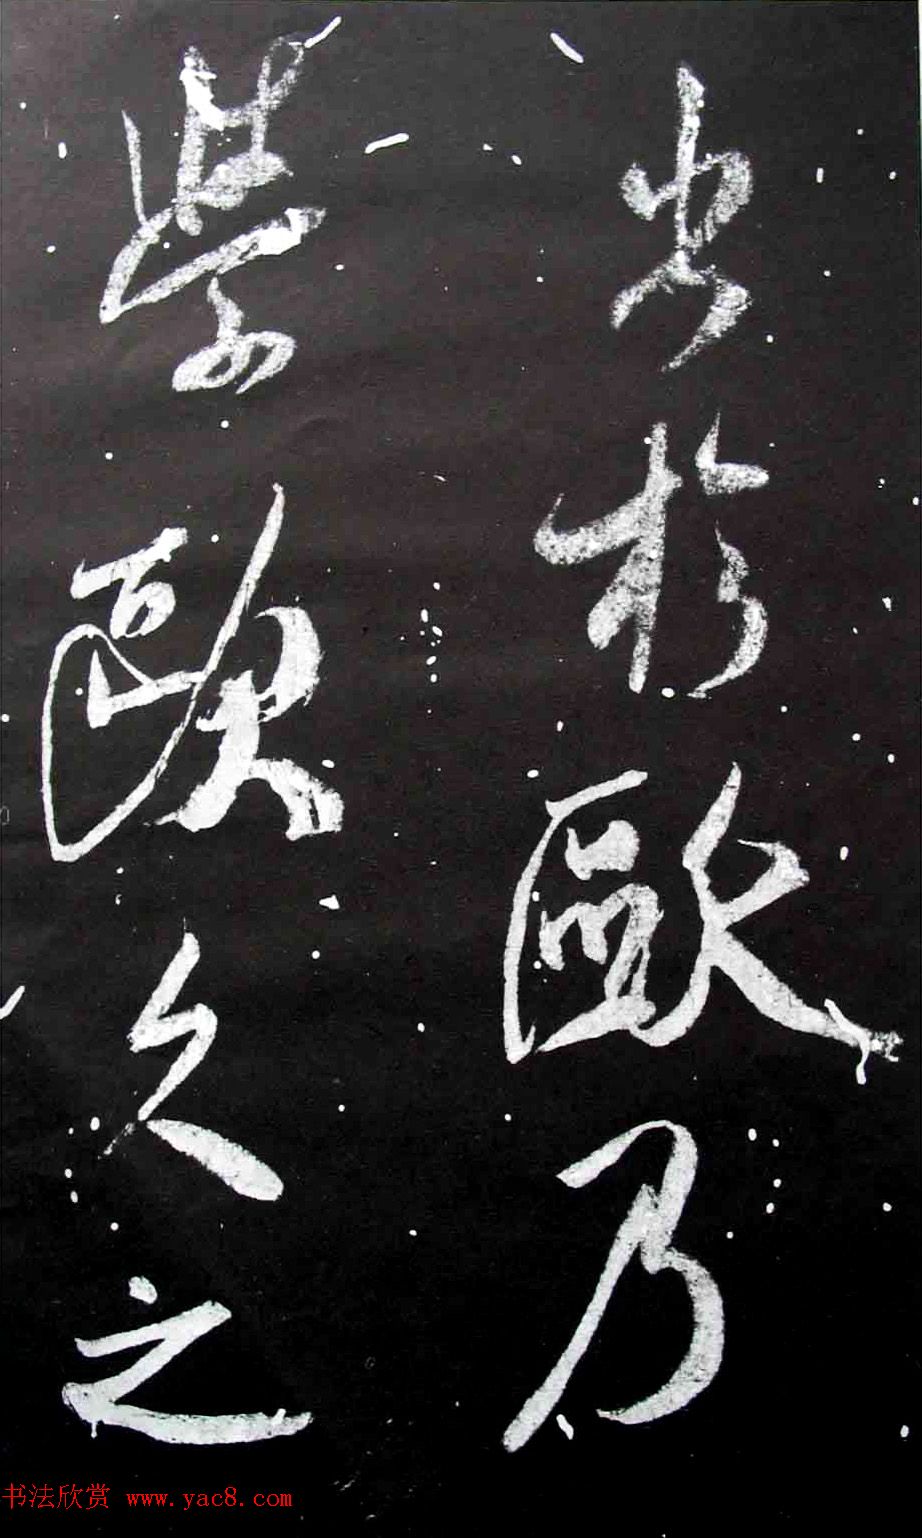 出於歐乃
學歐久之
书法欣赏 www.yac8.com